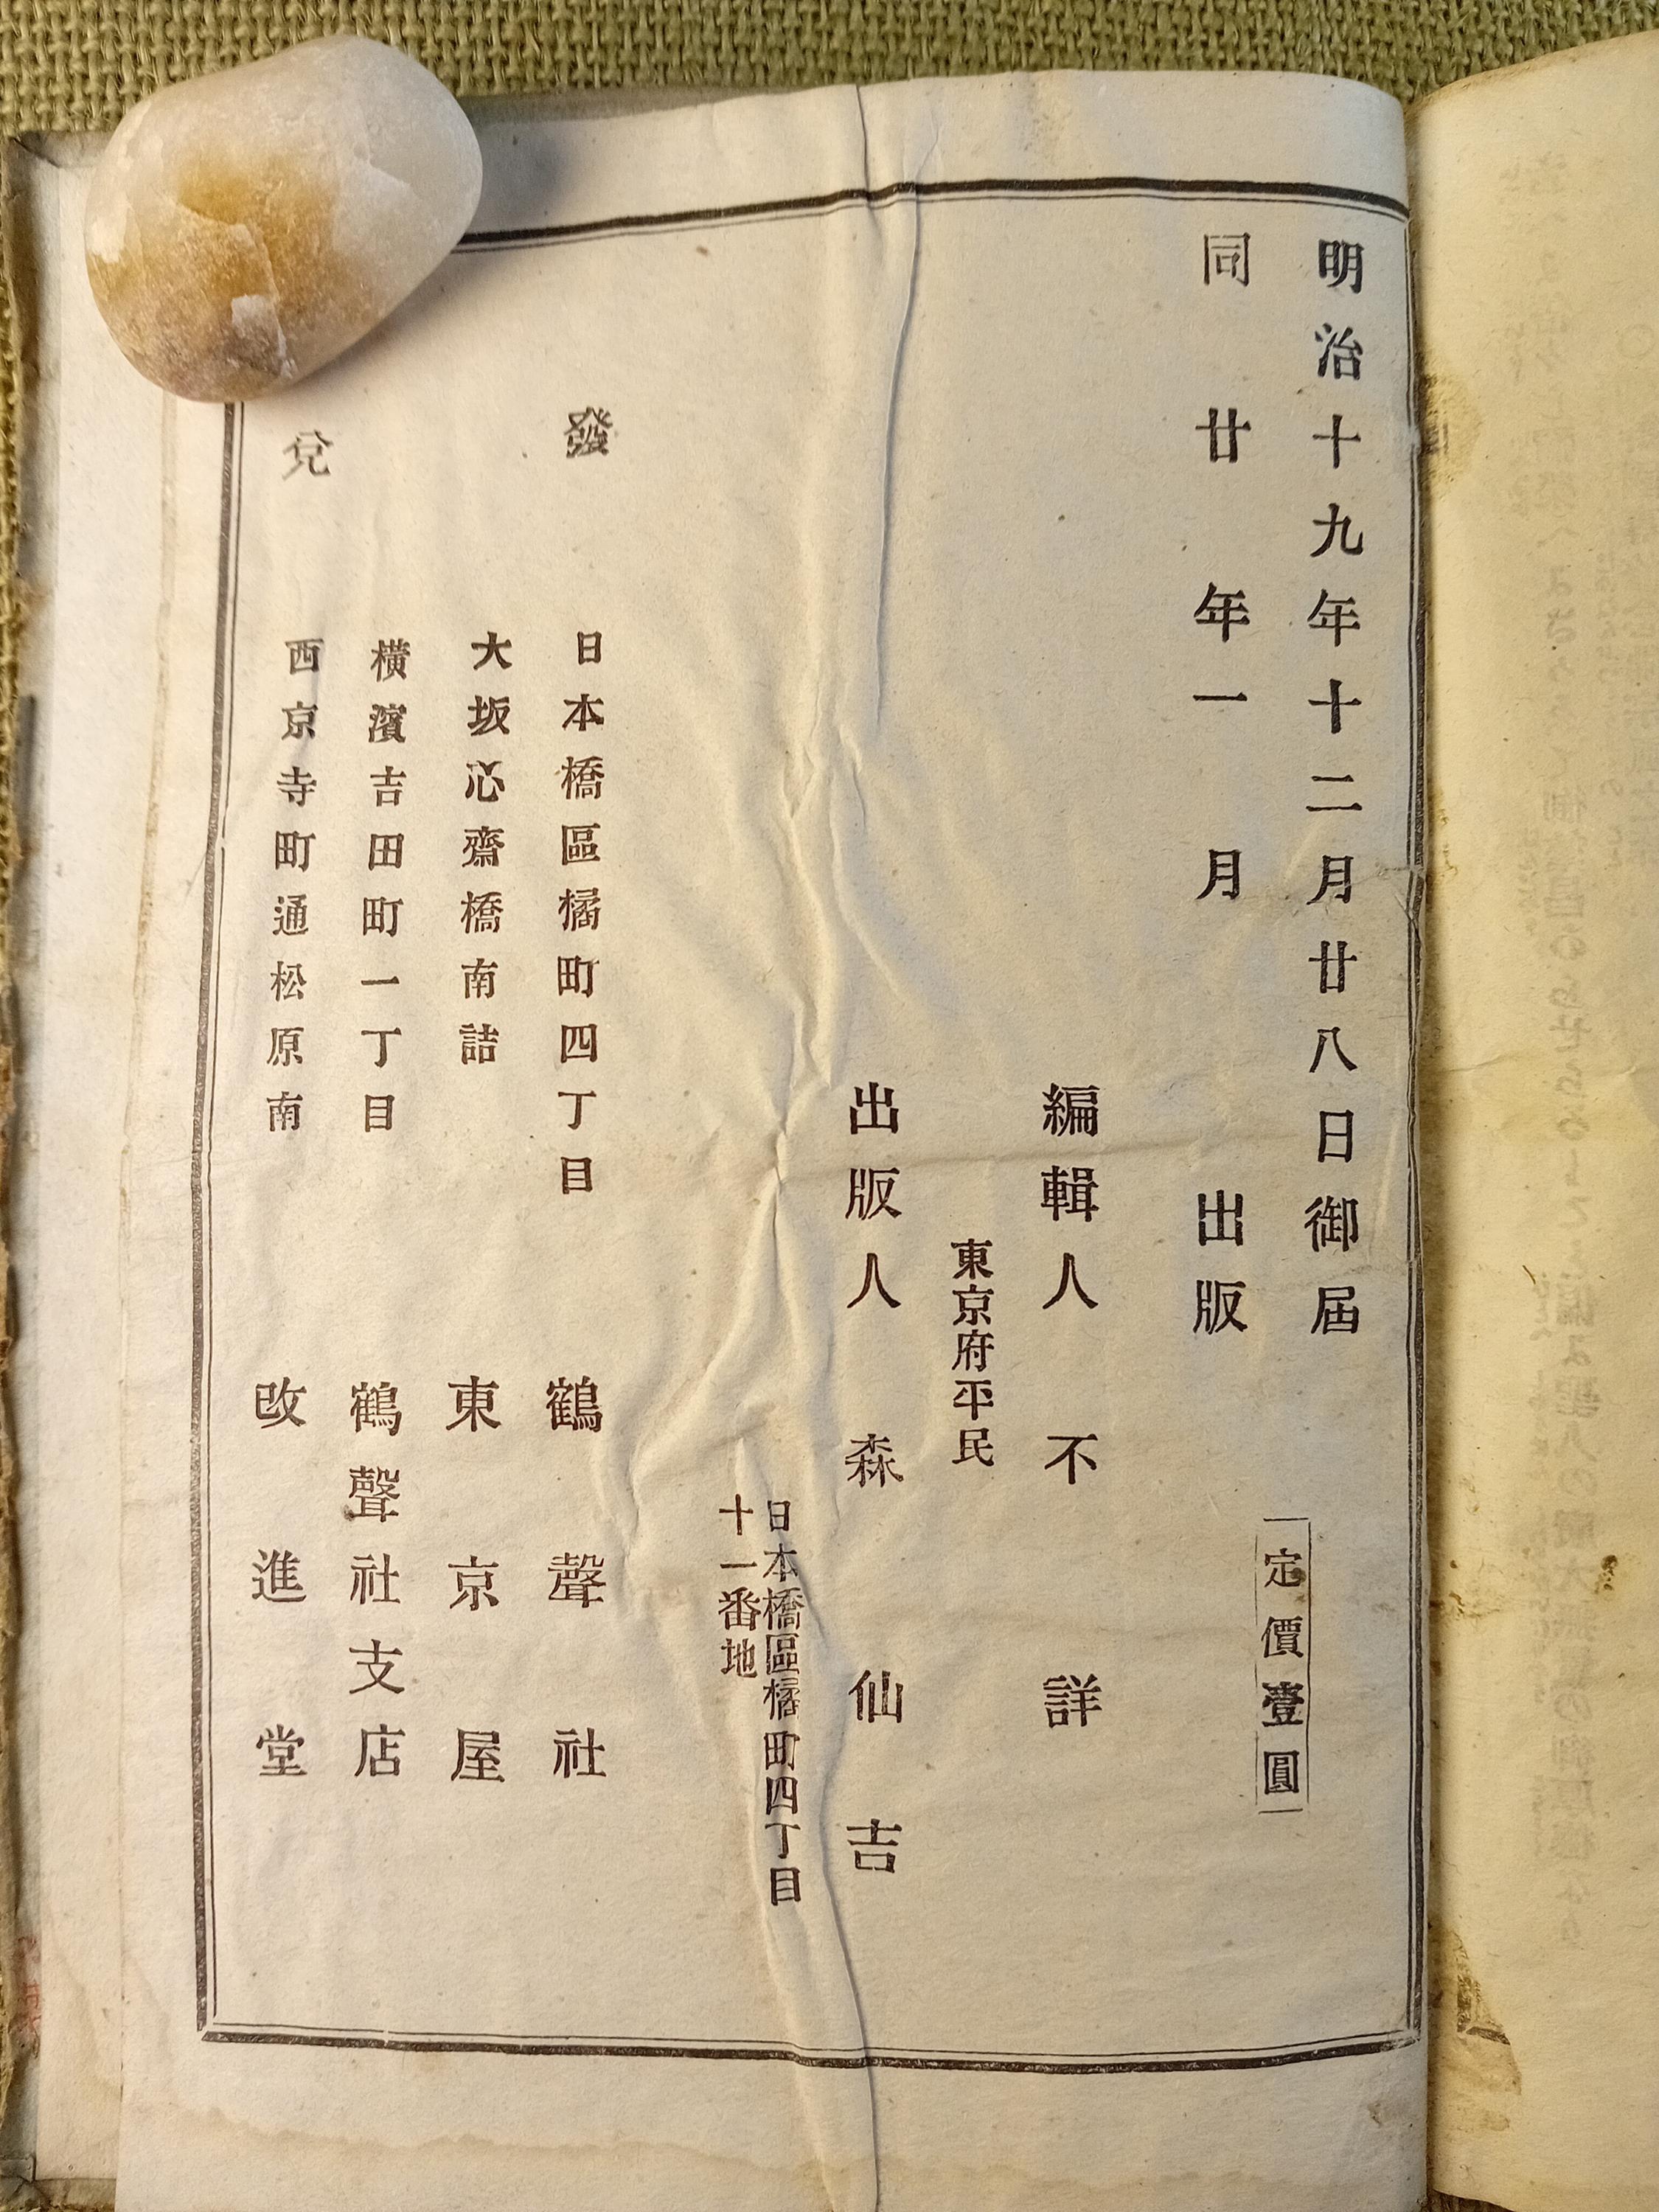 明治十九年十二月廿八日御届
同廿年一月出版
定價壹圓
編輯人不詳
東京府平民
出版人森仙吉
日本橋區橘町四丁目
十一番地
發兌
日本橋區橘町四丁目鶴聲社
大坂心齋橋南詰東京屋
横濱吉田町一丁目鶴聲社支店
西京寺町通松原南改進堂